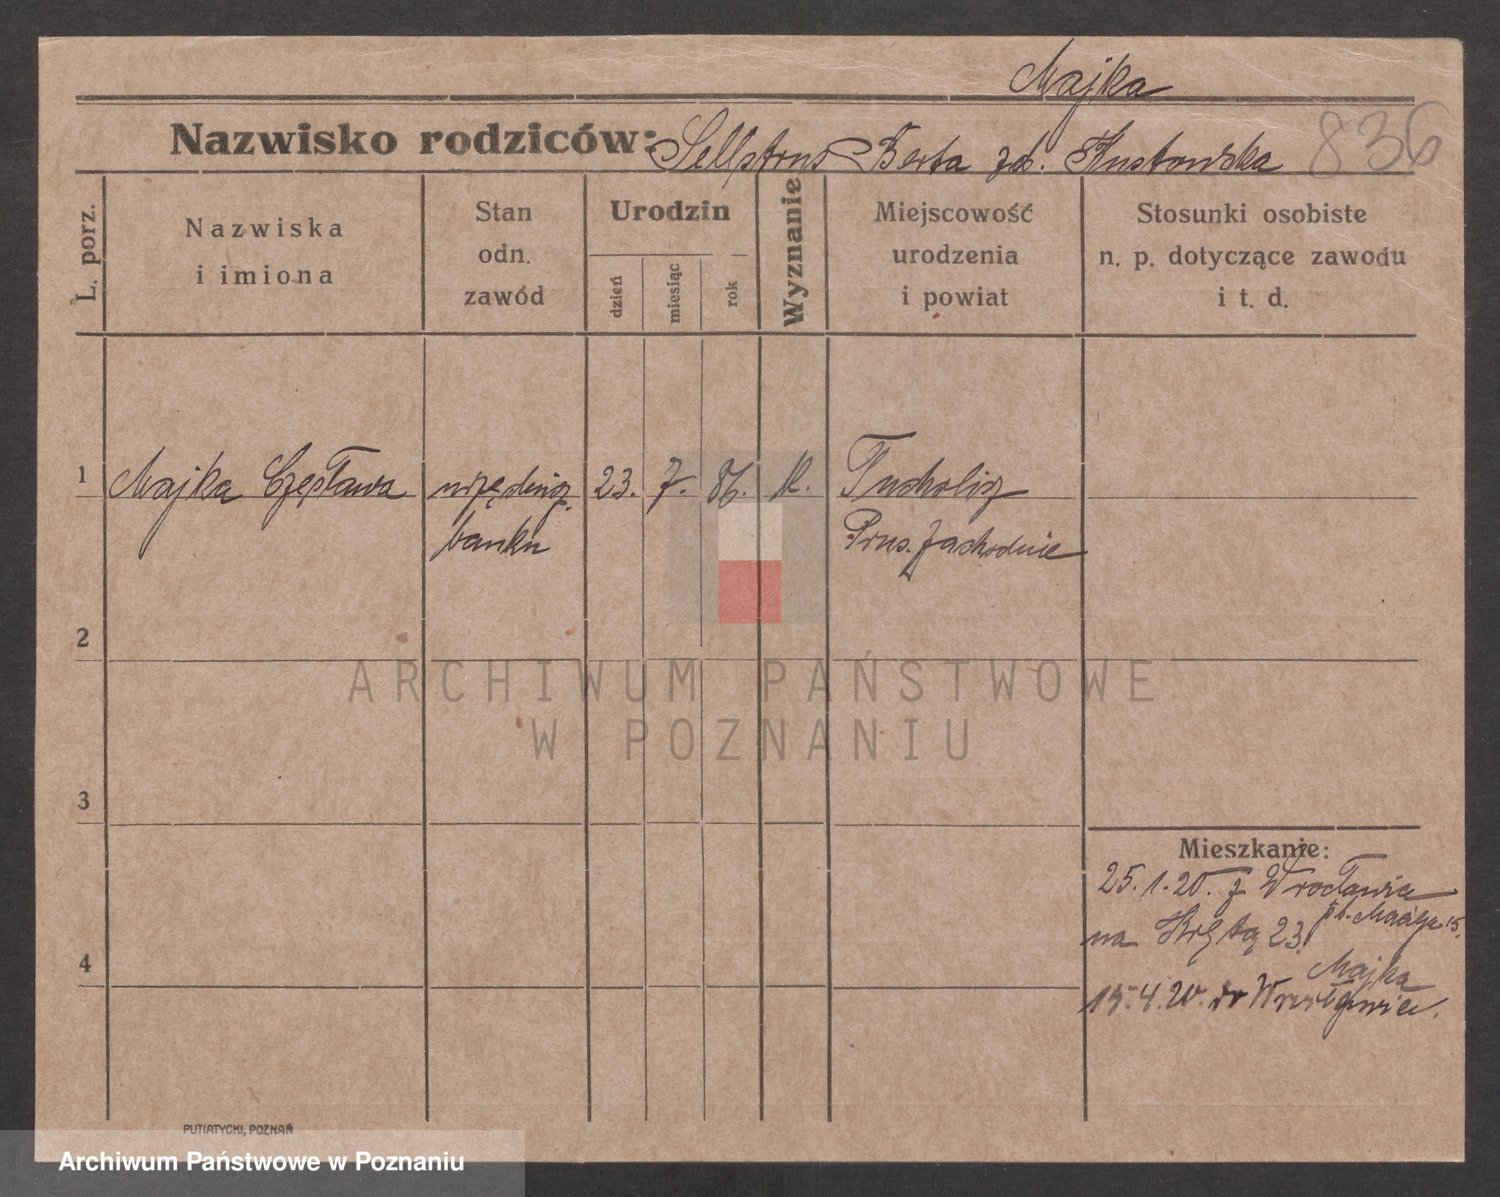 Majka
Nazwisko rodziców: Berta zd. Kustowska 836
L. porz.
Nazwiska
i imiona
Stan
odn.
zawód
Urodzin
dzień
miesiąc
rok
Wyznanie
Miejscowość
urodzenia
i powiat
Stosunki osobiste
n. p. dotyczące zawodu
i t. d.
1 Majka Częsława urzędnicz. 23. 7. 86. K.
banku Prus. Zachodnie
2
3
4
Mieszkanie:
25.1.20. z Wrocławia
na Krętą 23 15.
Majka
15.4.20. do
PUTIATYCKI, POZNAŃ
ARCHIWUM PAŃSTWOWE
W POZNANIU
Archiwum Państwowe w Poznaniu